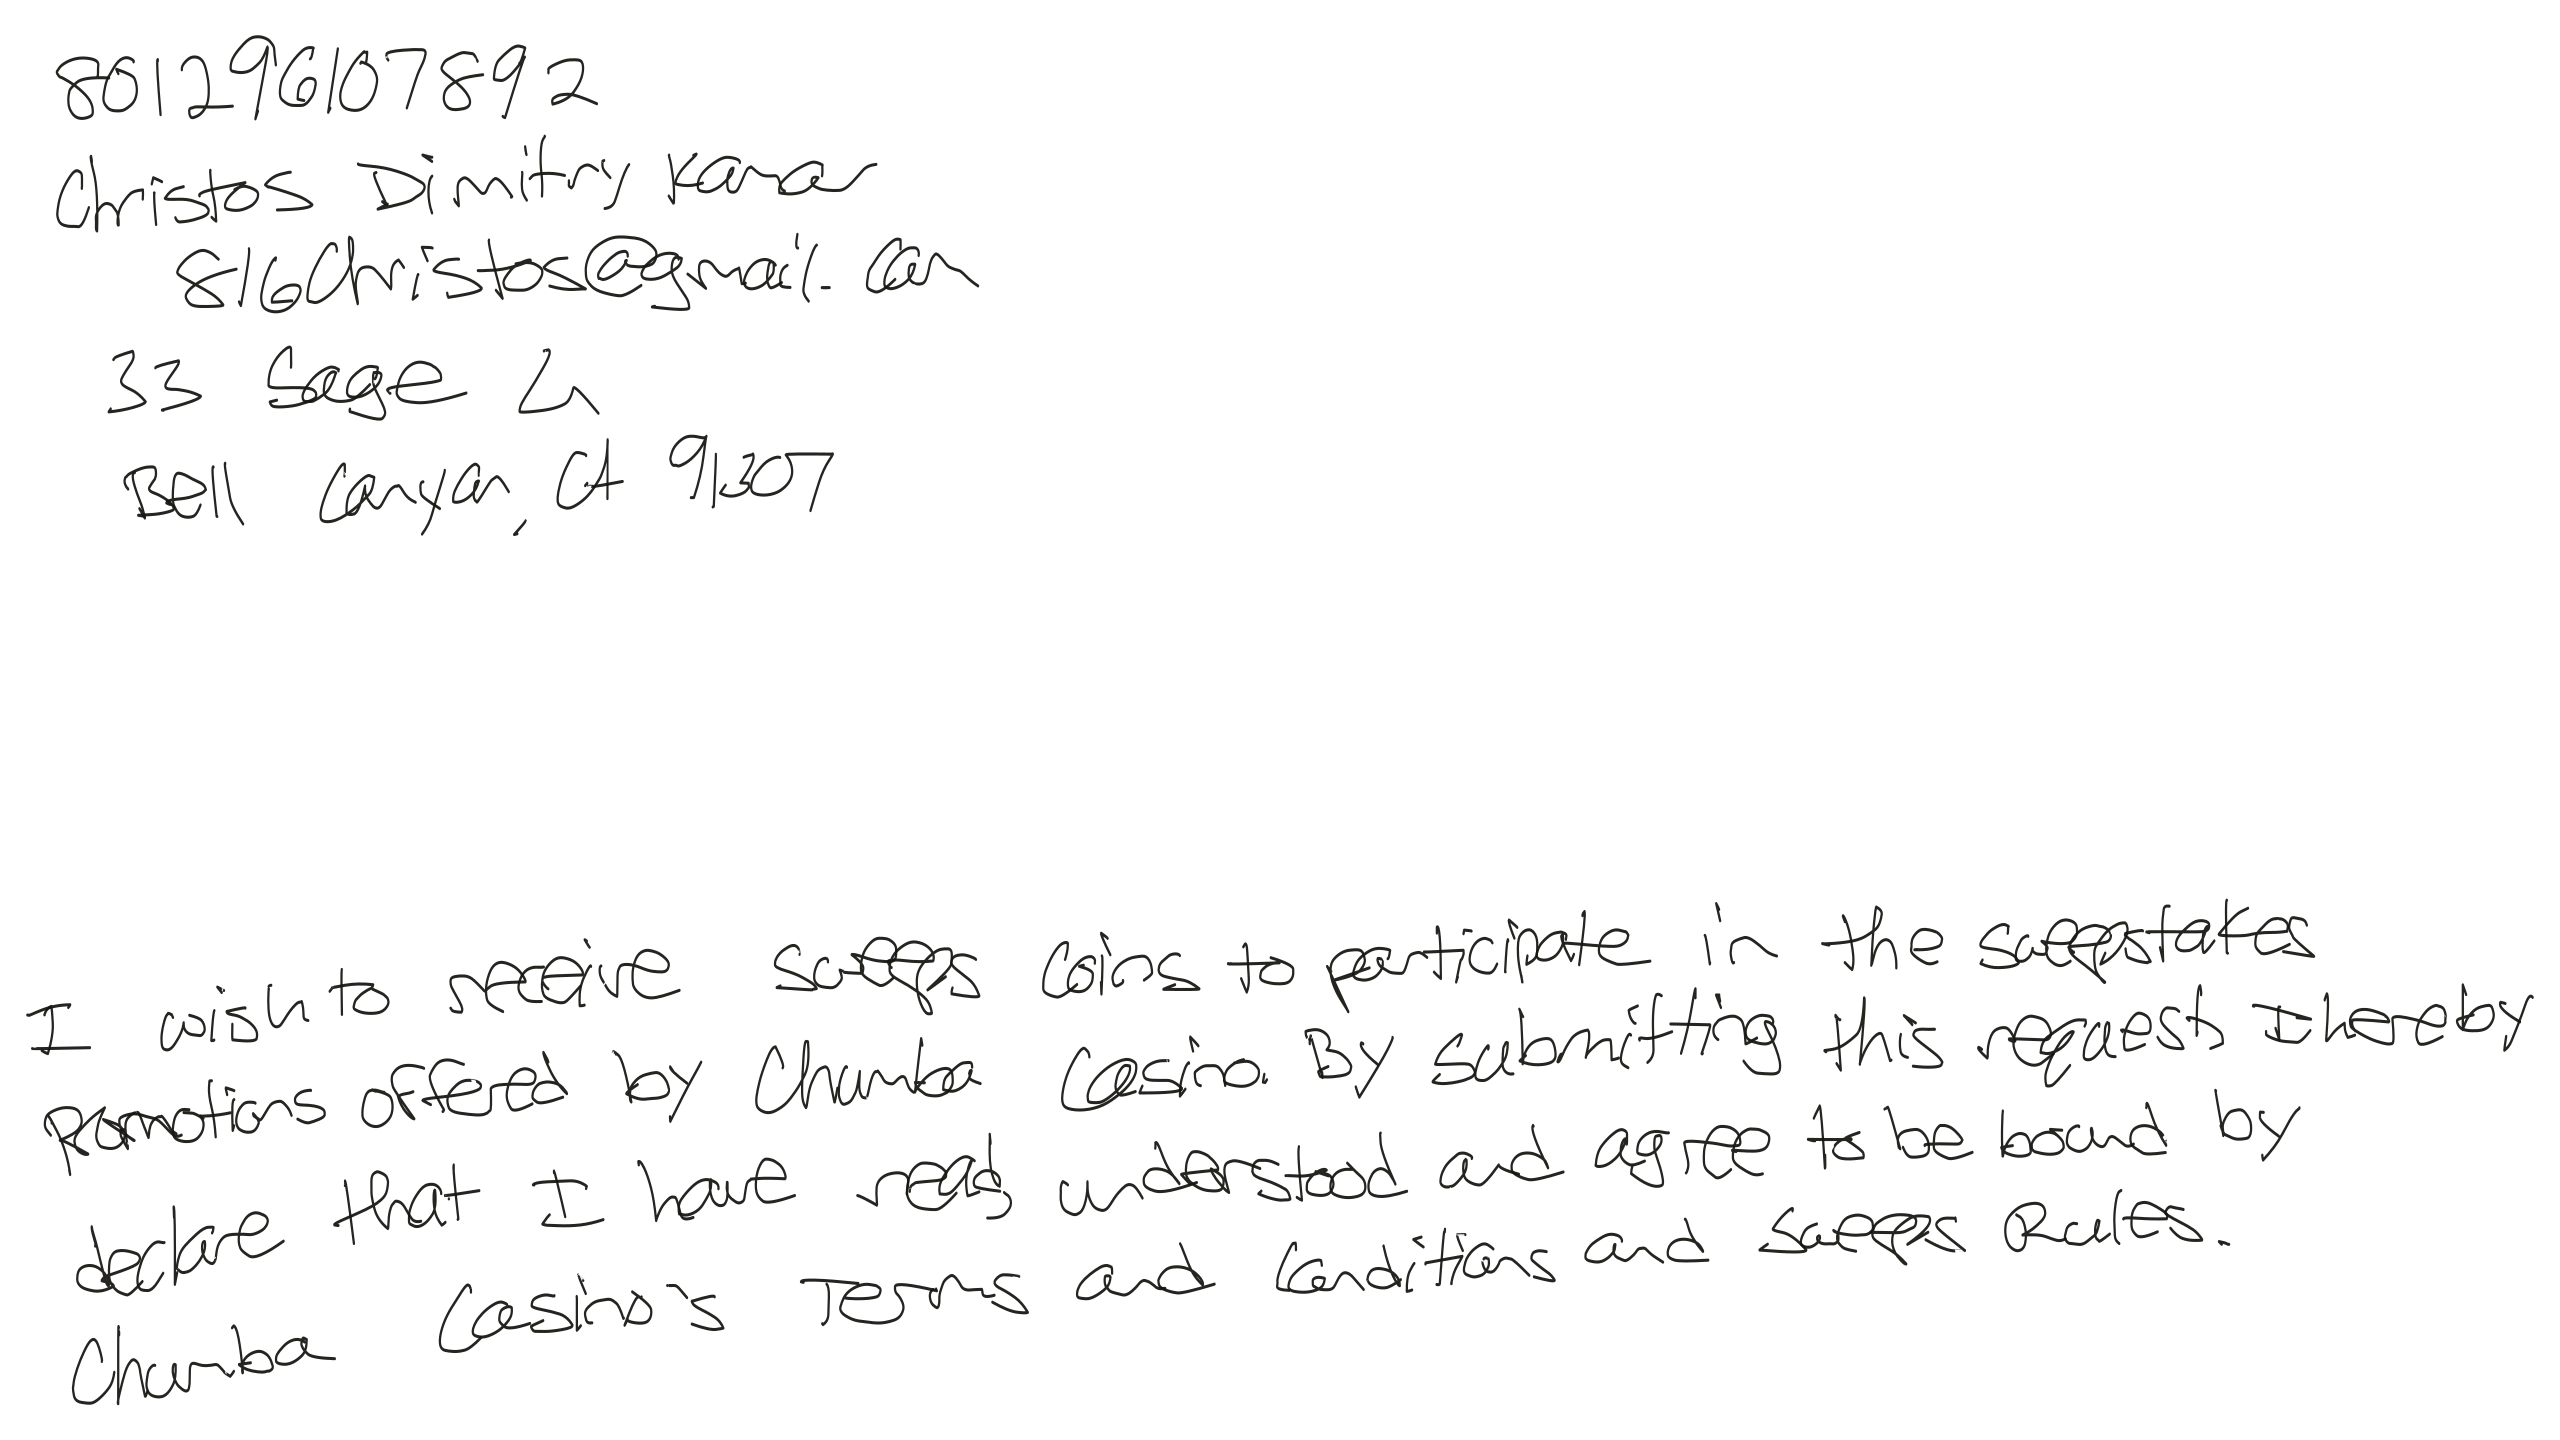 801296107892
Christos Dimitry Kamar
816Christos@gmail.com
33 Sage Ln
Bell Canyon, CA 91307
I wish to receive sweeps coins to participate in the sweepstakes
promotions offered by Chumba Casino. By submitting this request, I hereby
declare that I have read, understood and agree to be bound by
Chumba Casino's Terms and Conditions and Sweeps Rules.